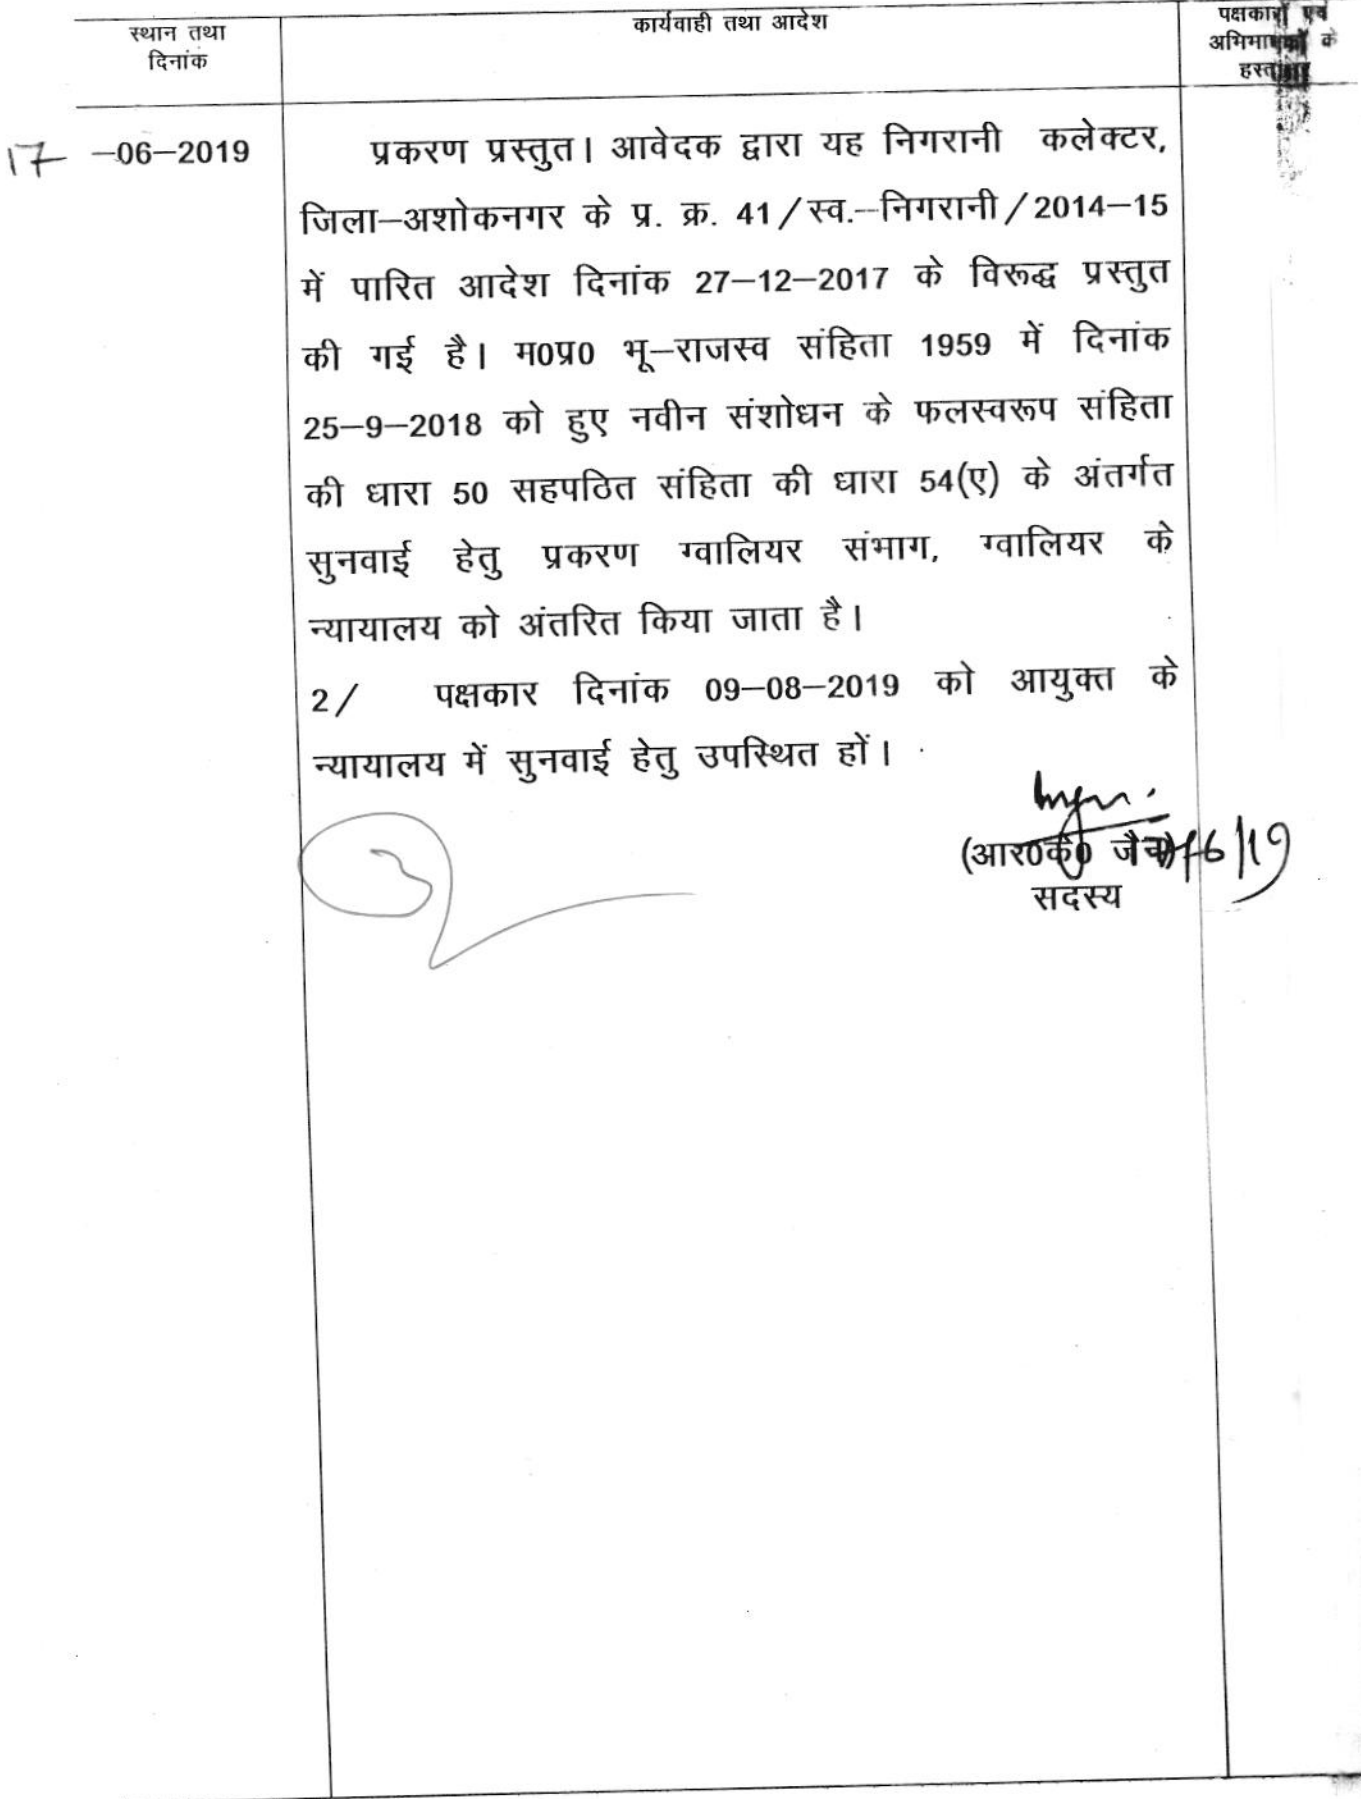 स्थान तथा
दिनांक
कार्यवाही तथा आदेश
पक्षकारों एवं
अभिभाषकों के
17 –06–2019
प्रकरण प्रस्तुत। आवेदक द्वारा यह निगरानी कलेक्टर,
जिला–अशोकनगर के प्र. क्र. 41/स्व.–निगरानी/2014–15
में पारित आदेश दिनांक 27–12–2017 के विरूद्ध प्रस्तुत
की गई है। म0प्र0 भू–राजस्व संहिता 1959 में दिनांक
25–9–2018 को हुए नवीन संशोधन के फलस्वरूप संहिता
की धारा 50 सहपठित संहिता की धारा 54(ए) के अंतर्गत
सुनवाई हेतु प्रकरण ग्वालियर संभाग, ग्वालियर के
न्यायालय को अंतरित किया जाता है।
2/ पक्षकार दिनांक 09–08–2019 को आयुक्त के
न्यायालय में सुनवाई हेतु उपस्थित हों।
(आर0के0 जैन) 6/19
सदस्य